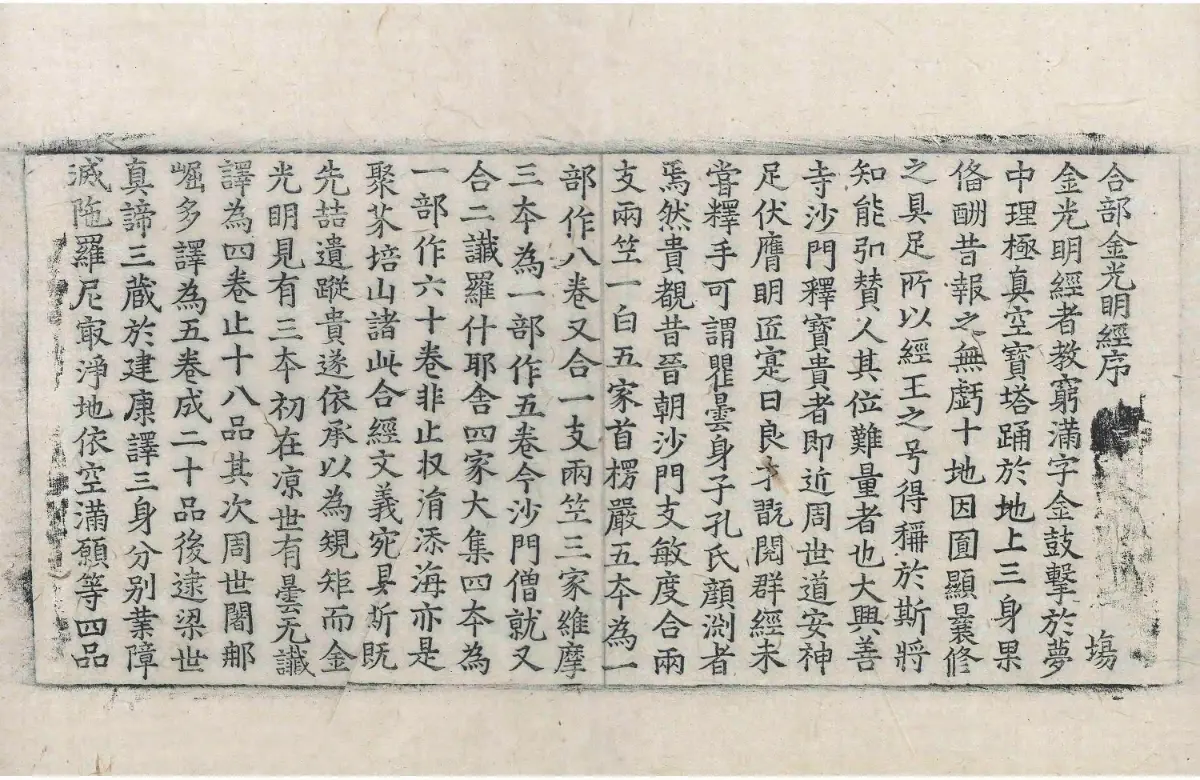 合部金光明經序 塲
金光明經者教窮滿字金鼓擊於夢
中理極真空寶塔踊於地上三身果
俻酬昔報之無虧十地因圎顯曩修
之具足所以經王之号得稱於斯將
知能弘賛人其位難量者也大興善
寺沙門釋寶貴者即近周世道安神
足伏膺明匠寔曰良才翫閱群經未
甞釋手可謂瞿曇身子孔氏顔渕者
焉然貴覩昔晉朝沙門支敏度合兩
支兩笁一白五家首楞嚴五夲為一
部作八卷又合一支兩笁三家維摩
三夲為一部作五卷今沙門僧就又
合二讖羅什耶舎四家大集四夲為
一部作六十卷非止収涓添海亦是
聚芥培山諸此合經文義宛具斯既
先喆遺蹤貴遂依承以為䂓矩而金
光明見有三夲初在凉世有曇无讖
譯為四卷止十八品其次周世闍𨙻
崛多譯為五卷成二十品後逮梁世
真諦三蔵於建康譯三身分别業障
滅陁羅尼㝡淨地依空滿願等四品